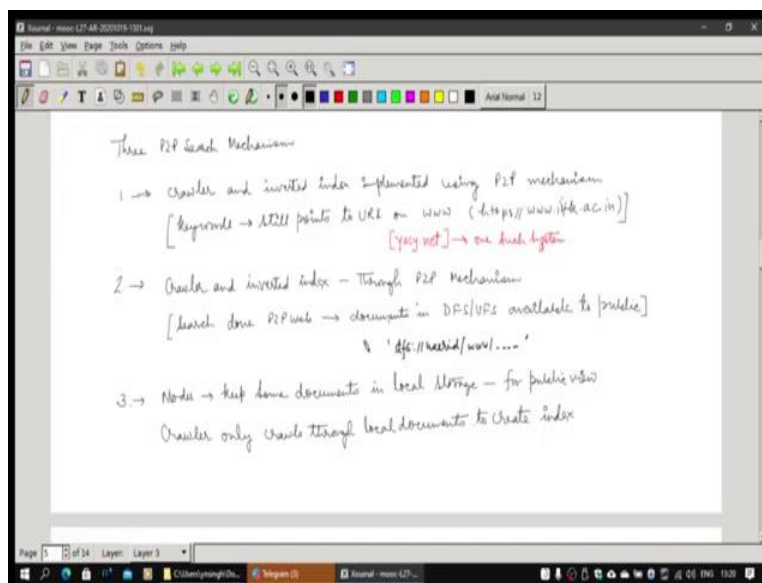 Xournal - mooc-L27-AR-20201019-1301.xoj
File Edit View Page Tools Options Help
Arial Normal 12
Three P2P Search Mechanism
1 → crawler and inverted index implemented using P2P mechanism
[keywords → still points to URL on WWW (https//www.iitk.ac.in)]
[yacy net] → one such system
2 → Crawler and inverted index - Through P2P Mechanism
[Search done P2P web → documents in DFS/UFS available to public]
'dfs://userid/www/....'
3. → Nodes → keep some documents in local storage - for public view
Crawler only crawls through local documents to create index
Page 5 of 14 Layer: Layer 3
C:\Users\ynsingh\Do... Telegram (3) Xournal - mooc-L27-... ENG 13:20